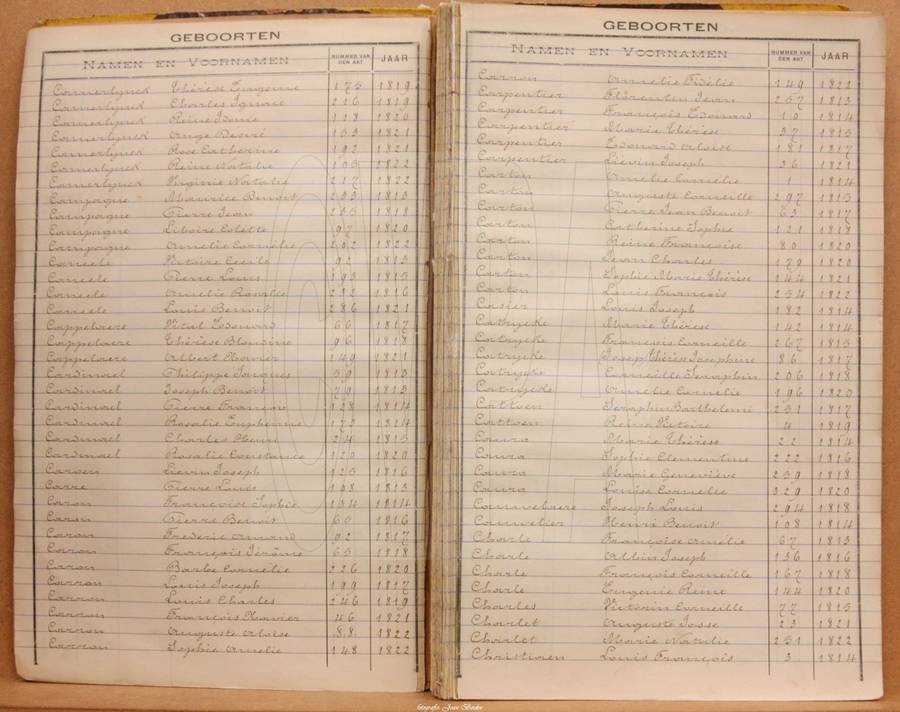 GEBOORTEN
NAMEN EN VOORNAMEN NUMMER VAN DEN AKT JAAR
Camerlynck Thérèse Eugenie 175 1819
Camerlynck Charles Ignace 216 1819
Camerlynck Reine 118 1820
Camerlynck Ange Desiré 133 1821
Camerlynck Rose Catherine 192 1821
Camerlynck Reine Natalie 105 1822
Camerlynck Virginie Natalie 217 1822
Campagne Maurice Benoit 1813
Campagne Pierre Jean
Campagne Liboire Colette 97 1820
Campagne Amelie Cornelie 202 1822
Caneele Victoire Cecile 92 1813
Caneele Pierre Louis 193 1815
Caneele Amelie Rosalie 212 1816
Caneele Louis Benoit 286 1821
Cappelaere Vital Edouard 66 1817
Cappelaere Thérèse Blandine 96 1818
Cappelaere Albert Xavier 149 1821
Cardinael Philippe Jacques 59 1813
Cardinael Joseph Benoit 79 1813
Cardinael Pierre François 128 1814
Cardinael Rosalie Euphemie 173 1814
Cardinael Charles Henri 24 1815
Cardinael Rosalie Constance 120 1820
Caroen Lievin Joseph 125 1816
Carre Pierre Louis 108 1813
Caron Françoise Sophie 134 1814
Caron Pierre Benoit 60 1816
Caron Frederic Armand 92 1817
Carron François Jérôme 65 1818
Carron Barbe Cornelie 226 1820
Carron Louis Joseph 199 1817
Carron Louis Charles 246 1819
Carron François Xavier 46 1821
Carron Auguste Aloise 88 1822
Carron Sophie Amelie 148 1822
GEBOORTEN
NAMEN EN VOORNAMEN NUMMER VAN DEN AKT JAAR
Carron Amelie Fidélie 149 1822
Carpentier Florentin Jean 257 1813
Carpentier François Edouard 10 1814
Carpentier Marie Thérèse 37 1815
Carpentier Edouard Aloise 181 1817
Carpentier Liévin Joseph 36 1821
Carton Amelie Cornelie 1 1814
Carton Auguste Corneille 297 1815
Carton Pierre Jean Benoit 63 1817
Carton Catherine Sophie 121 1818
Carton Reine Françoise 80 1820
Carton Jean Charles 179 1820
Carton Sophie Marie Thérèse 144 1821
Carton Louis François 254 1822
Casier Louis Joseph 182 1814
Catrycke Marie Thérèse 142 1814
Catrycke François Corneille 267 1815
Catrycke Joseph Thérèse Josephine 86 1817
Catrycke Corneille Seraphin 206 1818
Catrycke Amelie Cornelie 196 1820
Cattoen Seraphin Barthelemi 231 1817
Cattoen Reine Victoire 4 1819
Caura Marie Thérèse 22 1814
Caura Sophie Clementine 222 1816
Caura Marie Geneviève 239 1818
Caura Louise Cornelie 329 1820
Cauwelaere Joseph Louis 294 1818
Cauwelier Henri Benoit 108 1814
Charle Françoise Amelie 67 1813
Charle Albin Joseph 136 1816
Charle François Corneille 167 1818
Charle Eugenie Reine 144 1820
Charles Victorin Corneille 77 1815
Charlet Auguste Josse 23 1821
Charlet Marie Natalie 231 1822
Christiaen Louis François 3 1814